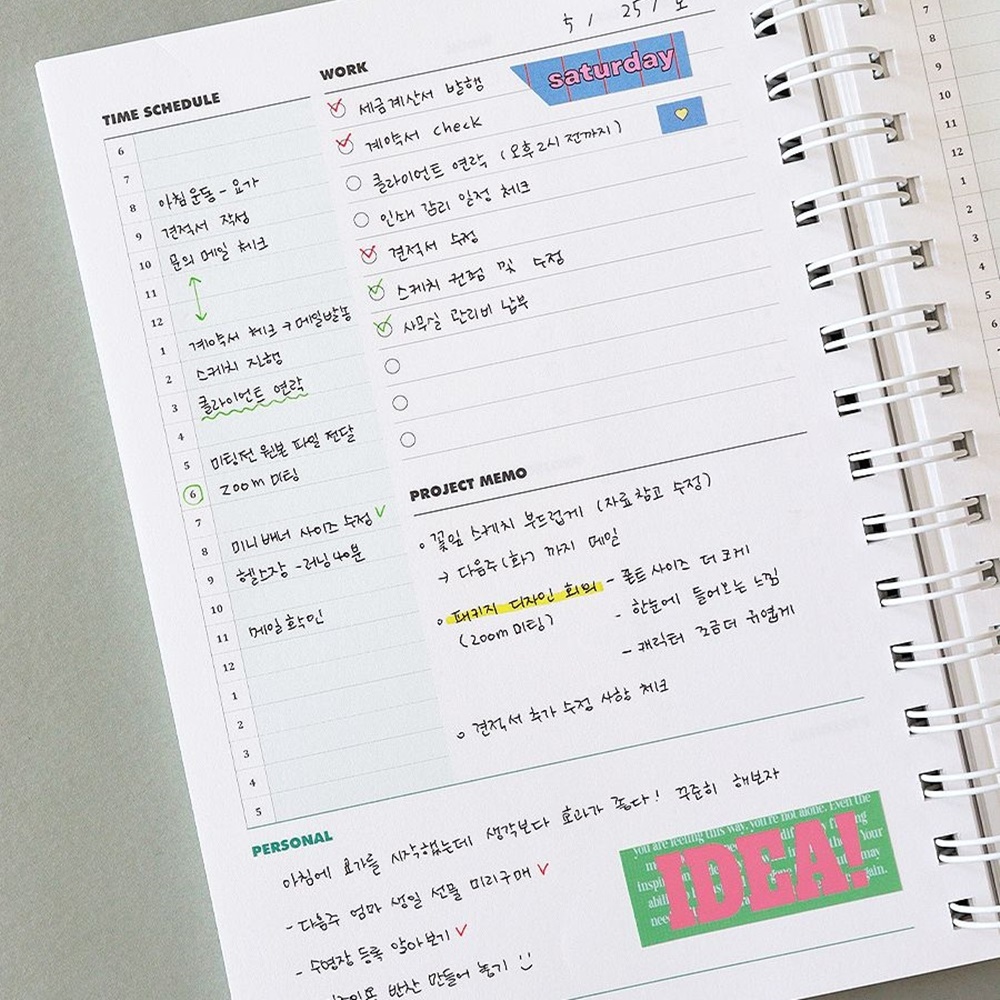 5 / 25 / 토
TIME SCHEDULE
6
7
8 아침운동 - 요가
9 견적서 작성
10 문의 메일 체크
11
12
1 계약서 체크 → 메일발송
2 스케치 진행
3 클라이언트 연락
4
5 미팅전 원본 파일 전달
6 zoom 미팅
7
8 미니배너 사이즈 수정
9 헬스장 - 러닝 40분
10
11 메일확인
12
1
2
3
4
5
WORK
saturday
세금계산서 발행
계약서 check
클라이언트 연락 (오후 2시 전까지)
인쇄 감리 일정 체크
견적서 수정
스케치 컨펌 및 수정
사무실 관리비 납부
PROJECT MEMO
꽃잎 스케치 부드럽게 (자료 참고 수정)
→ 다음주 (화) 까지 메일
패키지 디자인 회의 - 폰트 사이즈 더 크게
(zoom 미팅) - 한눈에 들어오는 느낌
- 캐릭터 조금더 귀엽게
견적서 추가 수정 사항 체크
PERSONAL
아침에 요가를 시작했는데 생각보다 효과가 좋다! 꾸준히 해보자
- 다음주 엄마 생일 선물 미리구매
- 수영장 등록 알아보기
반찬 만들어 놓기
you are feeling this way, you're not alone. Even the
IDEA!
7
8
9
10
11
12
1
2
3
4
5
6